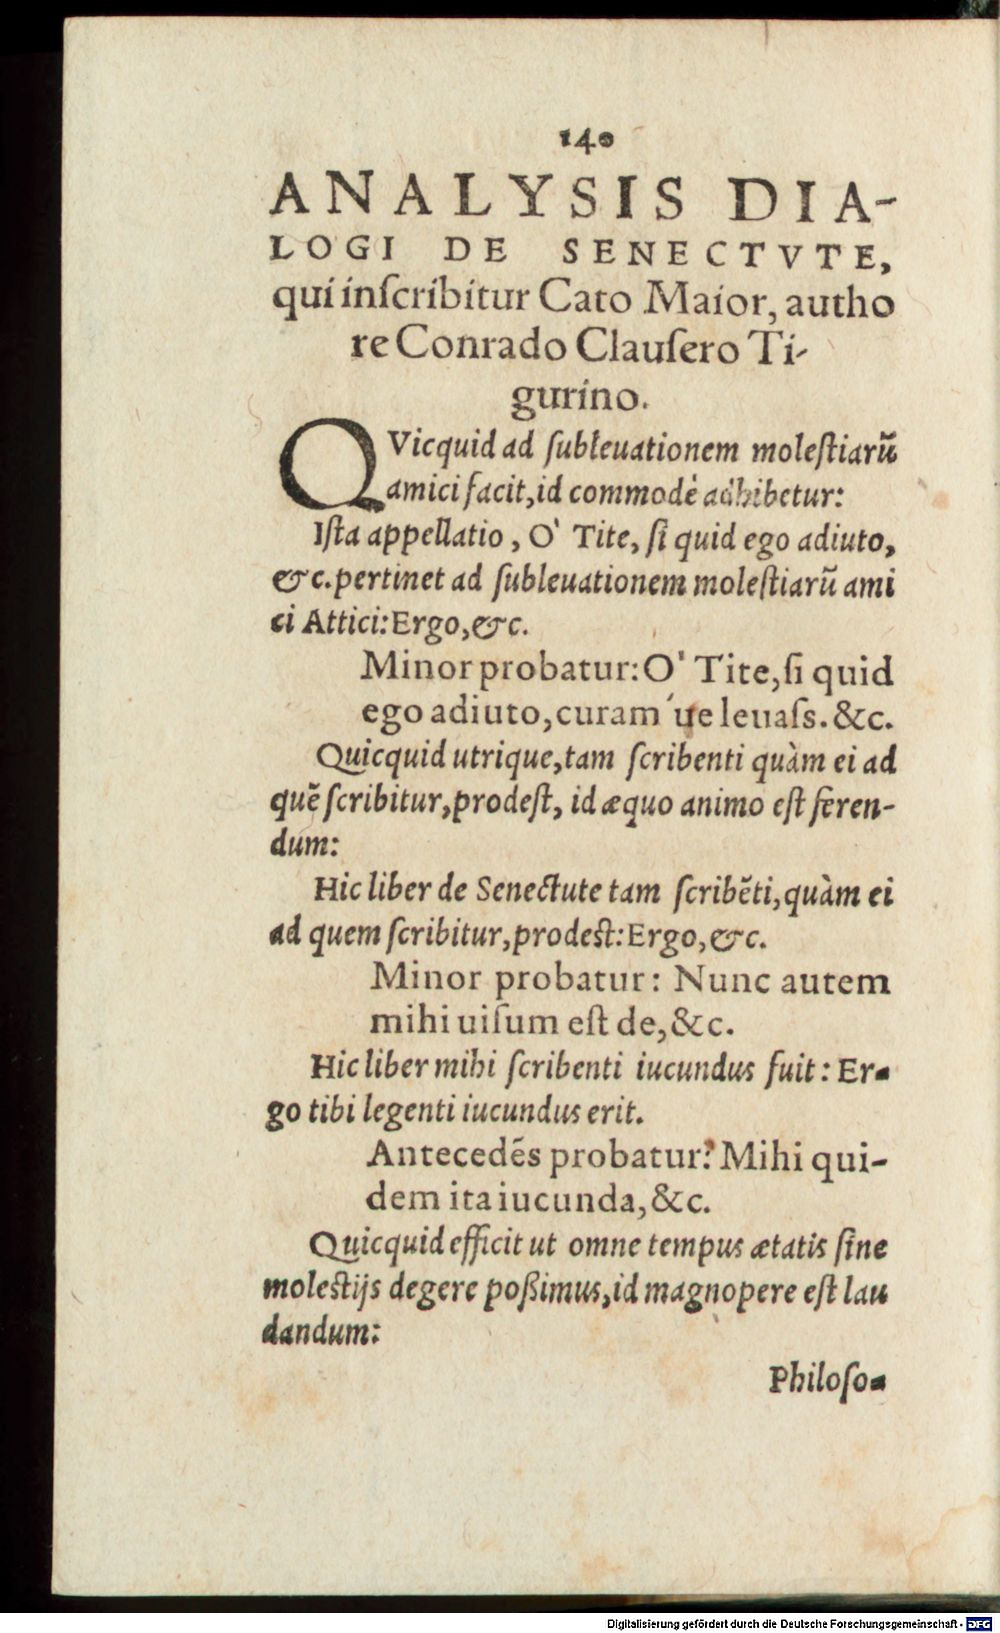 140
ANALYSIS DIA-
LOGI DE SENECTVTE,
qui inſcribitur Cato Maior, autho
re Conrado Clauſero Ti-
gurino.
QVicquid ad ſubleuationem moleſtiarũ
amici facit, id commodè adhibetur:
Iſta appellatio, O' Tite, ſi quid ego adiuto,
&c. pertinet ad ſubleuationem moleſtiarũ ami
ci Attici: Ergo, &c.
Minor probatur: O' Tite, ſi quid
ego adiuto, curam ue leuaſs. &c.
Quicquid utrique, tam ſcribenti quàm ei ad
quẽ ſcribitur, prodeſt, id æquo animo eſt feren-
dum:
Hic liber de Senectute tam ſcribẽti, quàm ei
ad quem ſcribitur, prodeſt: Ergo, &c.
Minor probatur: Nunc autem
mihi uiſum eſt de, &c.
Hic liber mihi ſcribenti iucundus fuit: Er-
go tibi legenti iucundus erit.
Antecedẽs probatur: Mihi qui-
dem ita iucunda, &c.
Quicquid efficit ut omne tempus ætatis ſine
moleſtijs degere poßimus, id magnopere eſt lau
dandum:
Philoſo-
Digitalisierung gefördert durch die Deutsche Forschungsgemeinschaft - DFG